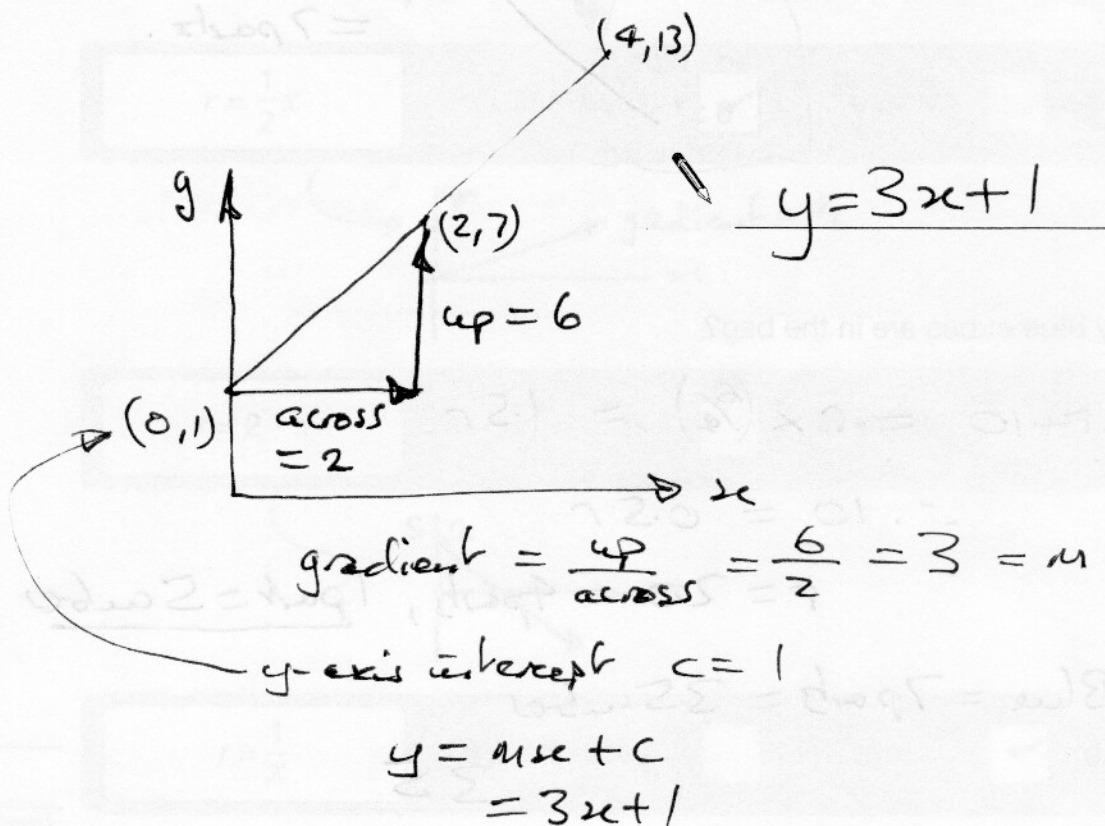 (4,13)
y
(2,7)
y=3x+1
up = 6
(0,1)
across
= 2
x
gradient = up/across = 6/2 = 3 = m
y-axis intercept c = 1
y = mx + c
= 3x+1